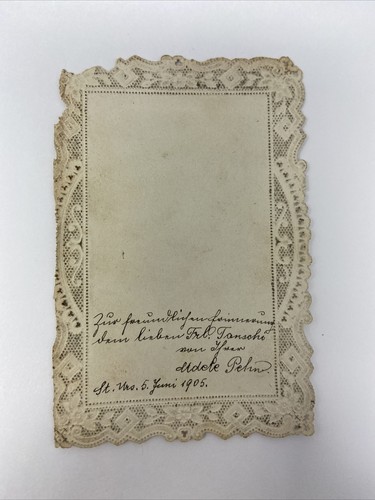 Zur freundlichen Erinnerung
dem lieben Frl. Tanschi
von Ihrer
Adele Pehn.
St. Urs. 5. Juni 1905.